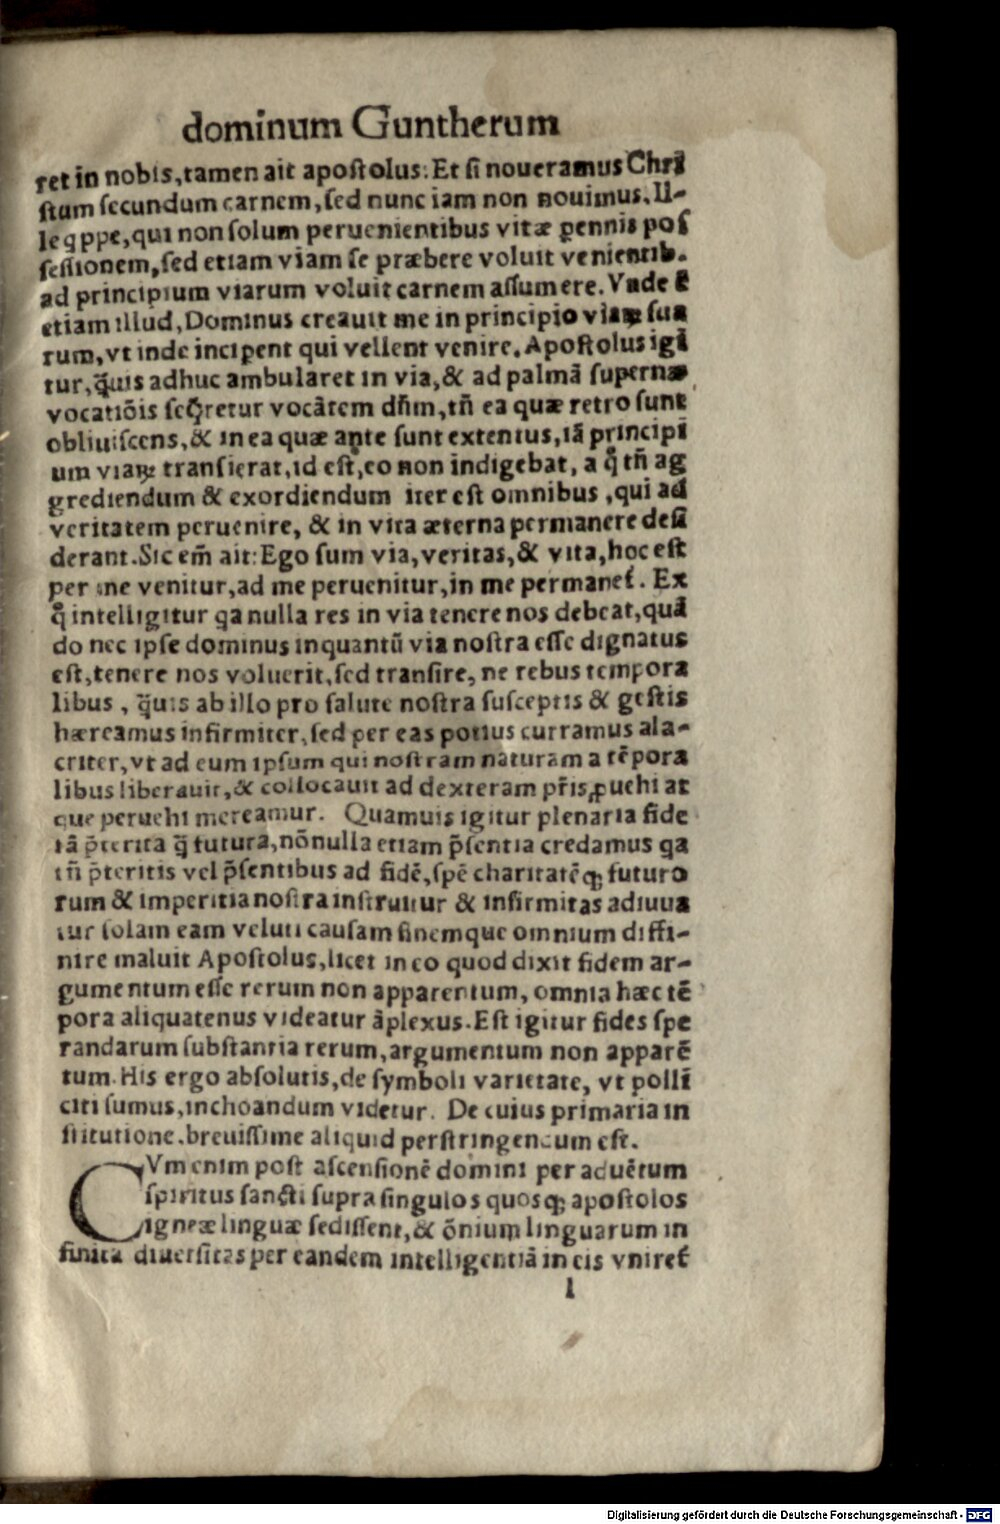 dominum Guntherum
ret in nobis, tamen ait apostolus: Et si noueramus Chrĩ
stum secundum carnem, sed nunc iam non nouimus. Il-
le q̃ppe, qui non solum peruenientibus vitæ ꝑennis pos
sessionem, sed etiam viam se præbere voluit venientib.
ad principium viarum voluit carnem assumere. Vnde ẽ
etiam illud, Dominus creauit me in principio viaꝝ sua
rum, vt inde inciperent qui vellent venire. Apostolus igĩ
tur, q̃uis adhuc ambularet in via, & ad palmã supernæ
vocatiõis seq̃retur vocãtem dñm, tñ ea quæ retro sunt
obliuiscens, & in ea quæ ante sunt extentus, iã principi
um viaꝝ transierat, id est, eo non indigebat, a q̊ tñ ag
grediendum & exordiendum iter est omnibus, qui ad
veritatem peruenire, & in vita æterna permanere desi
derant. Sic em̃ ait: Ego sum via, veritas, & vita, hoc est
per me venitur, ad me peruenitur, in me permanet̃. Ex
q̊ intelligitur qa nulla res in via tenere nos debeat, quã
do nec ipse dominus inquantũ via nostra esse dignatus
est, tenere nos voluerit, sed transire, ne rebus tempora
libus, q̃uis ab illo pro salute nostra susceptis & gestis
hæreamus infirmiter, sed per eas potius curramus ala-
criter, vt ad eum ipsum qui nostram naturam a tẽpora
libus liberauit, & collocauit ad dexteram pr̃is, ꝓuehi at
que peruehi mereamur. Quamuis igitur plenaria fide
tã p̃terita q̃ futura, nõnulla etiam p̃sentia credamus qa
tñ p̃teritis vel p̃sentibus ad fidẽ, spẽ charitatẽq; futuro
rum & imperitia nostra instruitur & infirmitas adiuua
tur solam eam veluti causam finemque omnium diffi-
nire maluit Apostolus, licet in eo quod dixit fidem ar-
gumentum esse rerum non apparentum, omnia hæc tẽ
pora aliquatenus videatur ãplexus. Est igitur fides spe
randarum substantia rerum, argumentum non apparẽ
tum. His ergo absolutis, de symboli varietate, vt pollĩ
citi sumus, inchoandum videtur. De cuius primaria in
stitutione breuissime aliquid perstringendum est.
CVm enim post ascensionẽ domini per aduẽtum
spiritus sancti supra singulos quosq; apostolos
igneæ linguæ sedissent, & õnium linguarum in
finita diuersitas per eandem intelligentiã in eis vniret̃
l
Digitalisierung gefördert durch die Deutsche Forschungsgemeinschaft - DFG